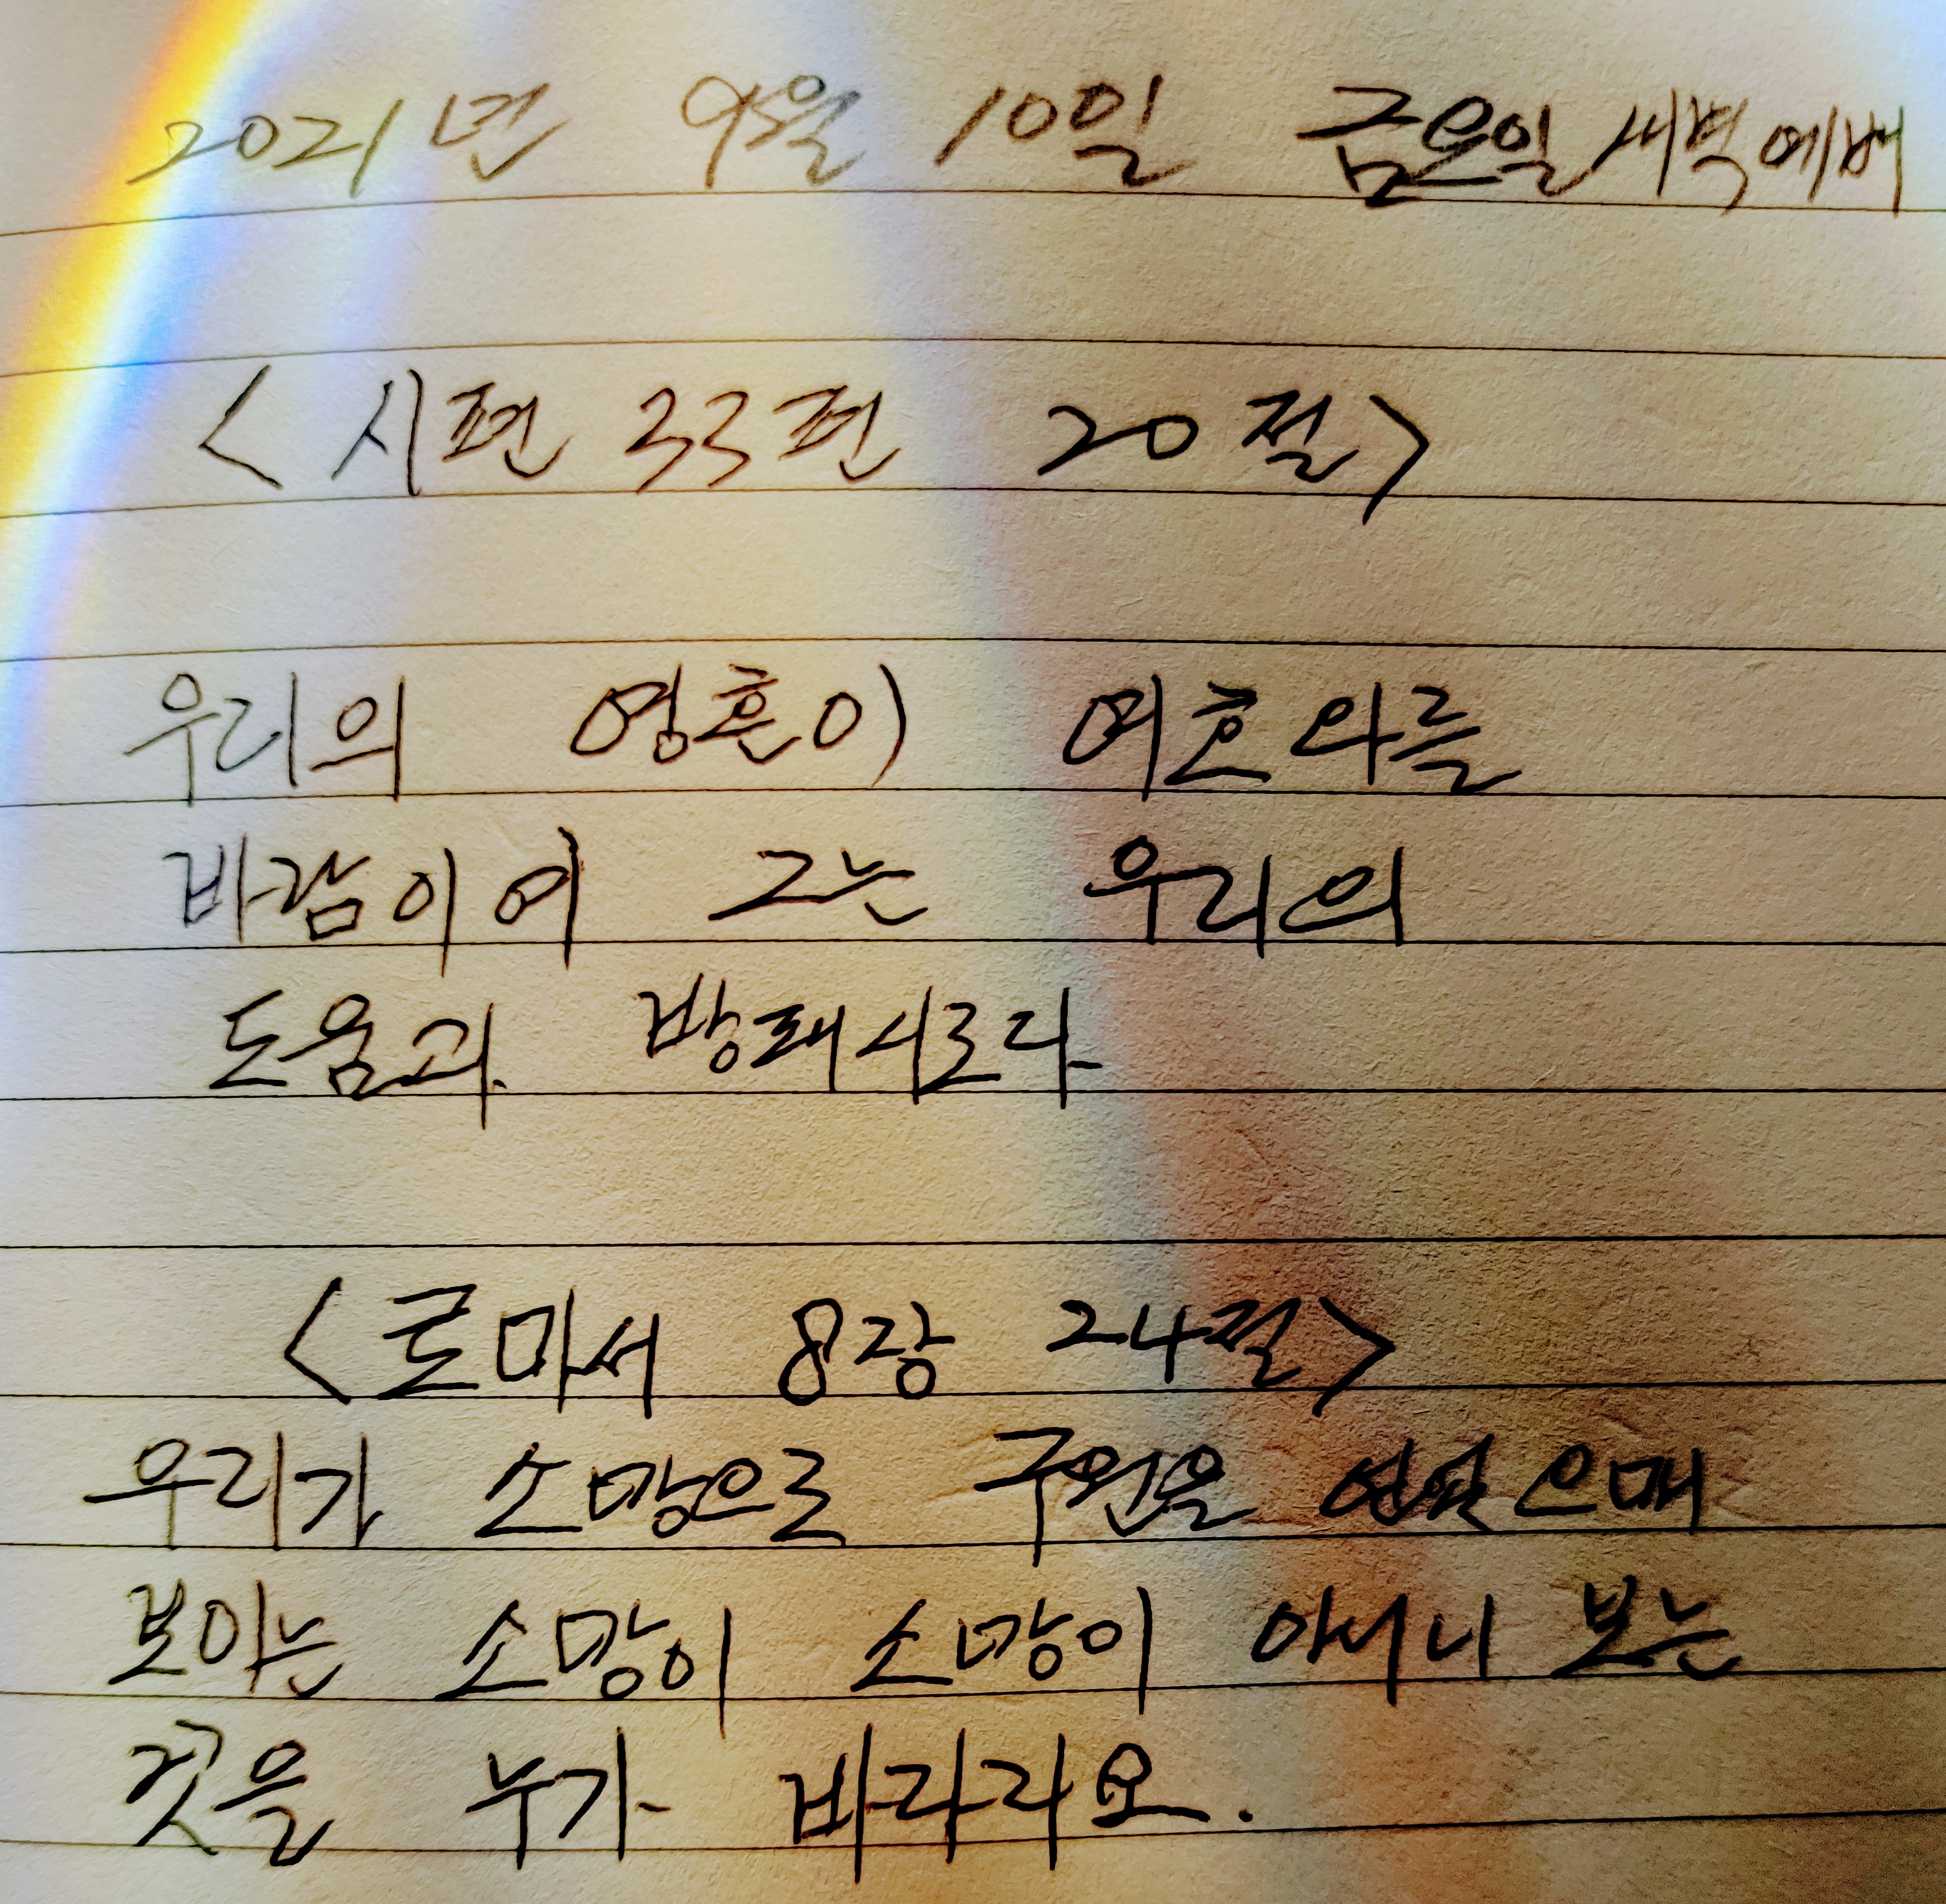 2021년 9월 10일 금요일 새벽예배
<시편 33편 20절>
우리의 영혼이 여호와를
바람이여 그는 우리의
도움과 방패시로다
<로마서 8장 24절>
우리가 소망으로 구원을 얻었으매
보이는 소망이 소망이 아니니 보는
것을 누가 바라리요.